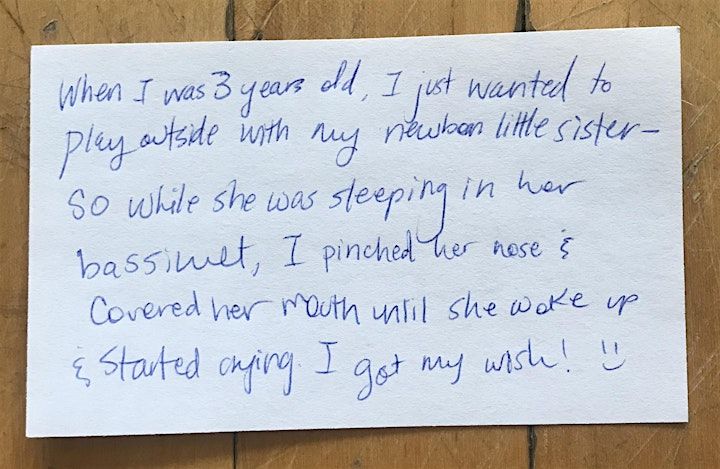 When I was 3 years old, I just wanted to
play outside with my newborn little sister—
so while she was sleeping in her
bassinet, I pinched her nose &
covered her mouth until she woke up
& started crying. I got my wish! :)